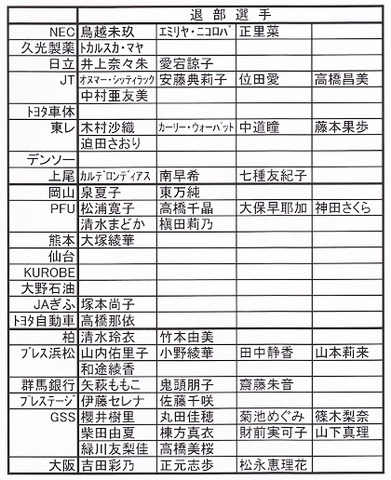 退部選手
NEC 鳥越未玖 エミリヤ・ニコロバ 正里菜
久光製薬 トカルスカ・マヤ
日立 井上奈々朱 愛宕諒子
JT オヌマー・シッティラック 安藤典莉子 位田愛 高橋昌美
中村亜友美
トヨタ車体
東レ 木村沙織 カーリー・ウォーパット 中道瞳 藤本果歩
迫田さおり
デンソー
上尾 カルデロンディアス 南早希 七種友紀子
岡山 泉夏子 東万純
PFU 松浦寛子 高橋千晶 大保早耶加 神田さくら
清水まどか 槇田莉乃
熊本 大塚綾華
仙台
KUROBE
大野石油
JAぎふ 塚本尚子
トヨタ自動車 高橋那依
柏 清水玲衣 竹本由美
ブレス浜松 山内佑里子 小野綾華 田中静香 山本莉来
和途綾香
群馬銀行 矢萩ももこ 鬼頭朋子 齋藤朱音
プレステージ 伊藤セレナ 佐藤千咲
GSS 櫻井樹里 丸田佳穂 菊池めぐみ 篠木梨奈
柴田由夏 棟方真衣 財前実可子 山下真理
緑川友梨佳 高橋美桜
大阪 吉田彩乃 正元志歩 松永恵理花